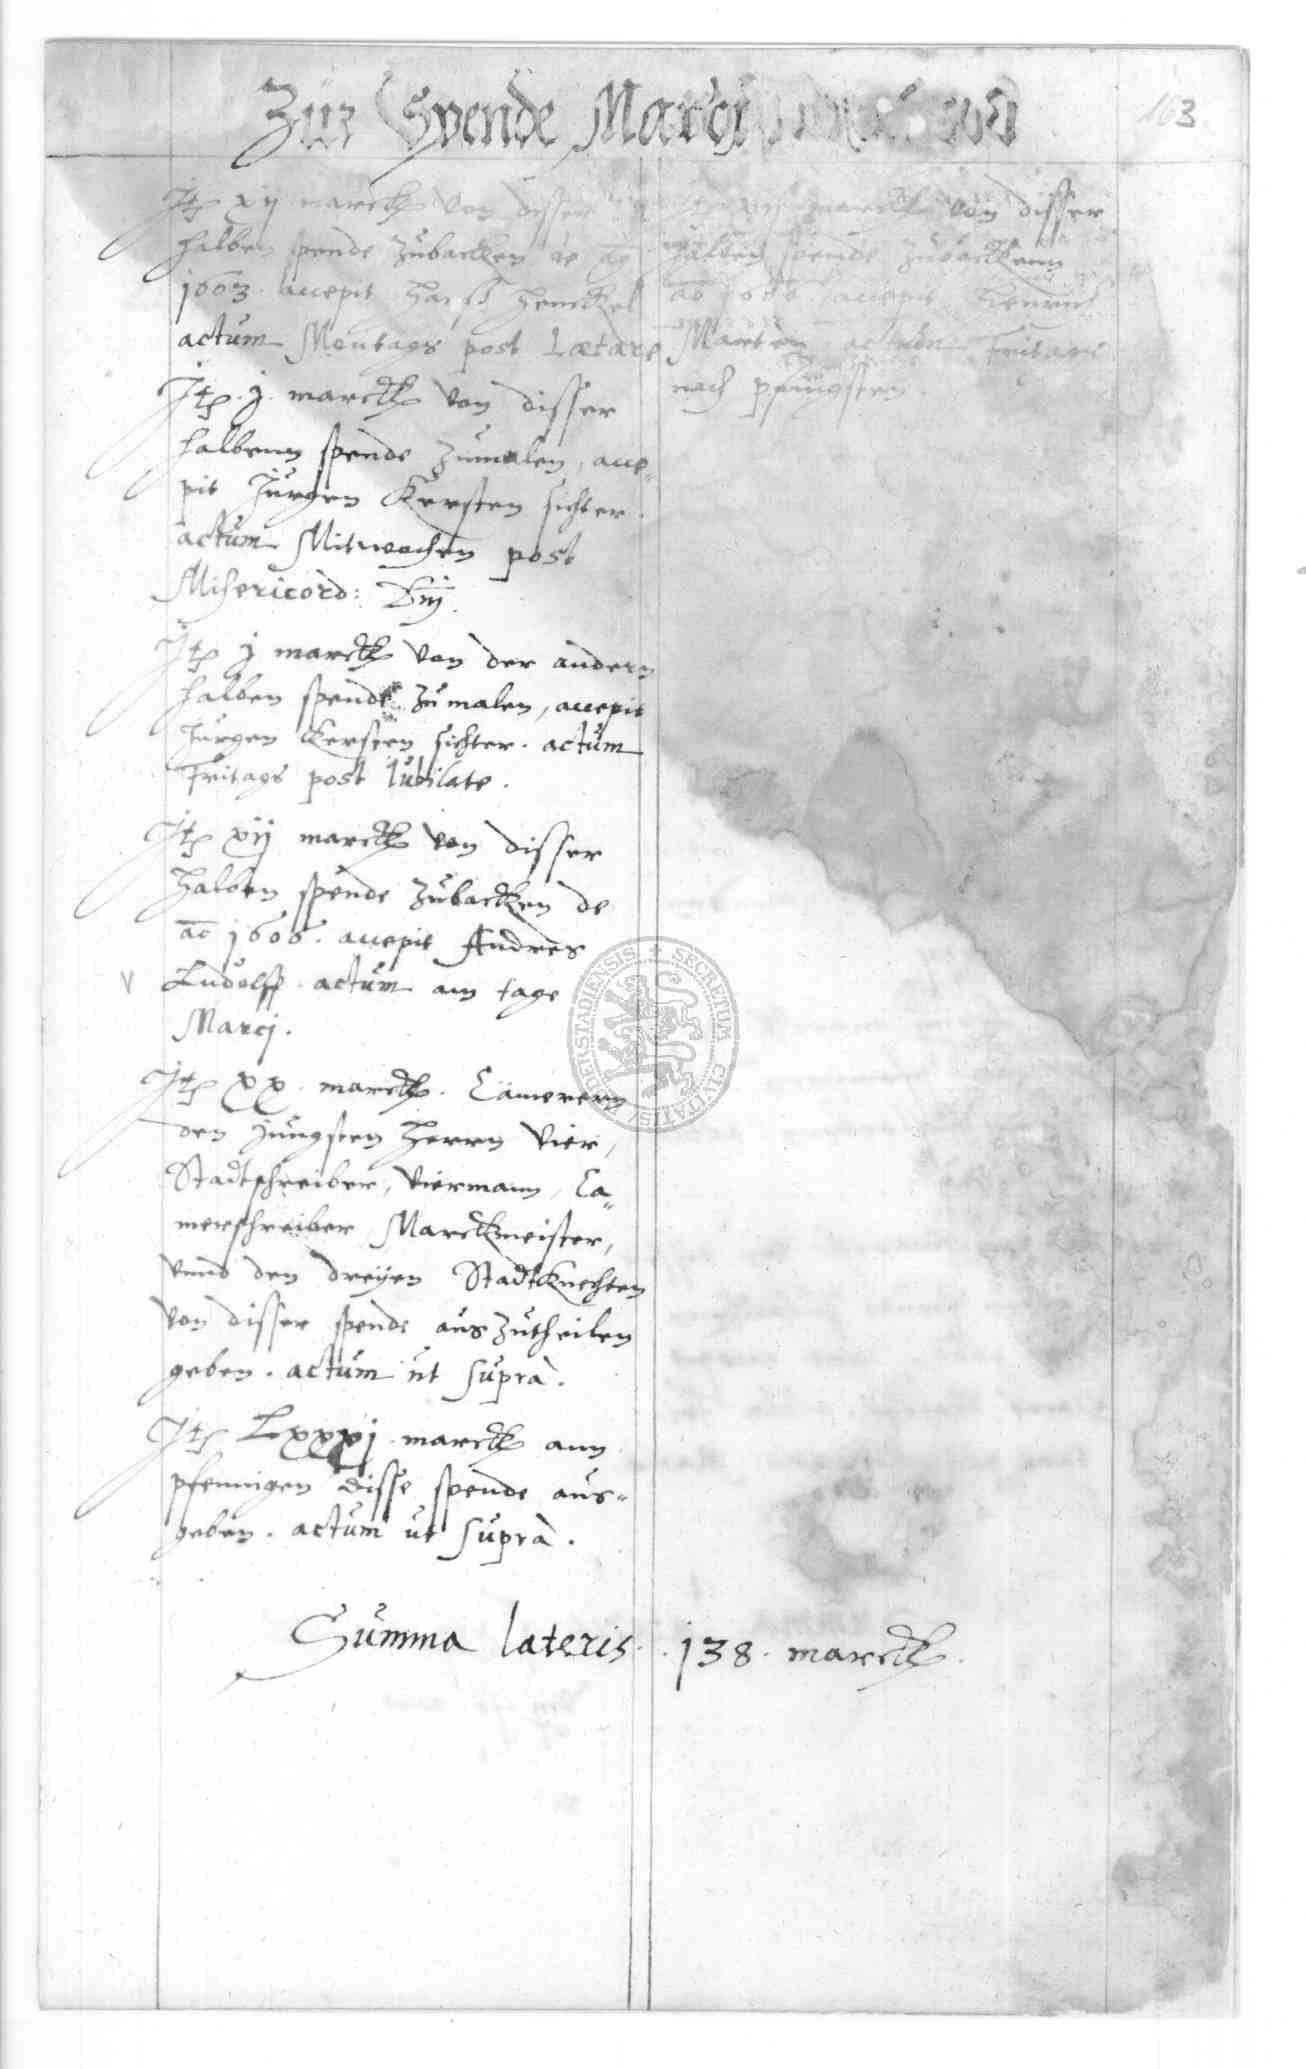 Zur Spende Marcj
163
Jtem xij marck von disser
halben spende zubacken de ao
1603. accepit Hanß Henckel
actum Montags post Lætare
Jtem .j. marck von disser
halbenn spende zumalen, acce„
pit Jürgen Kersten sichter.
actum Mitwochen post
Misericord: Dnj.
Jtem j marck von der andern
halben spende zumalen, accepit
Jürgen Kersten sichter. actum
Fritags post Jubilate.
Jtem xij marck von disser
halben spende zubacken de
ao 1606. accepit Andres
Ludolff. actum am tage
Marcj.
Jtem xx. marck. Cämerern
den jungsten Herrn Vier,
Stadtschreiber, Viermann, Ca„
merschreiber, Marckmeister,
vnnd den dreyen Stadtknechten
von disser spende aus zutheilen
geben. actum ut supra.
Jtem Lxxxj marck ann
pfennigen disse spende aus„
geben. actum ut supra.
Jtem xij marck von disser
halben spende zubackenn
ao 1606. accepit Henrich
Marten, actum Fritags
nach pfingsten.
Summa lateris. 138. marck.
SECRETUM CIVITATIS DUDERSTADIENSIS